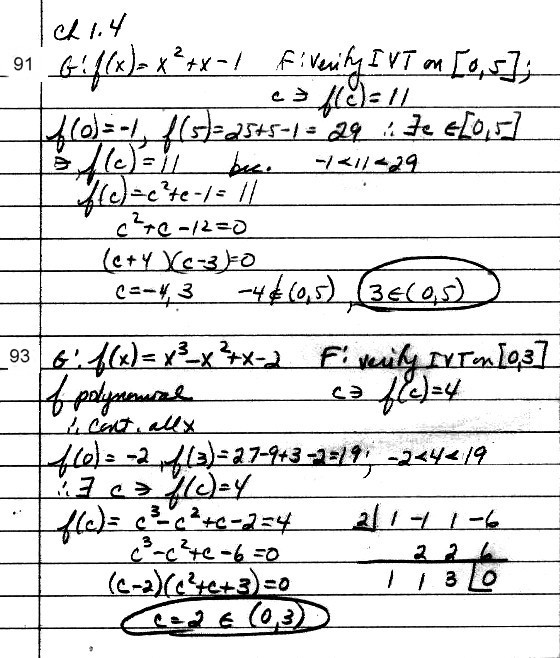 ch 1.4
91 G: f(x) = x² + x - 1 F: verify IVT on [0,5];
c ∋ f(c) = 11
f(0) = -1, f(5) = 25+5-1 = 29 ∴ ∃c ∈ [0,5]
∋ f(c) = 11 bec. -1 < 11 < 29
f(c) = c² + c - 1 = 11
c² + c - 12 = 0
(c+4)(c-3) = 0
c = -4, 3 -4 ∉ (0,5), 3 ∈ (0,5)
93 G: f(x) = x³ - x² + x - 2 F: verify IVT on [0,3]
f polynomial c ∋ f(c) = 4
∴ cont. all x
f(0) = -2, f(3) = 27-9+3-2 = 19; -2 < 4 < 19
∴ ∃ c ∋ f(c) = 4
f(c) = c³ - c² + c - 2 = 4 2| 1 -1 1 -6
c³ - c² + c - 6 = 0 2 2 6
(c-2)(c² + c + 3) = 0 1 1 3 |0
c = 2 ∈ (0,3)